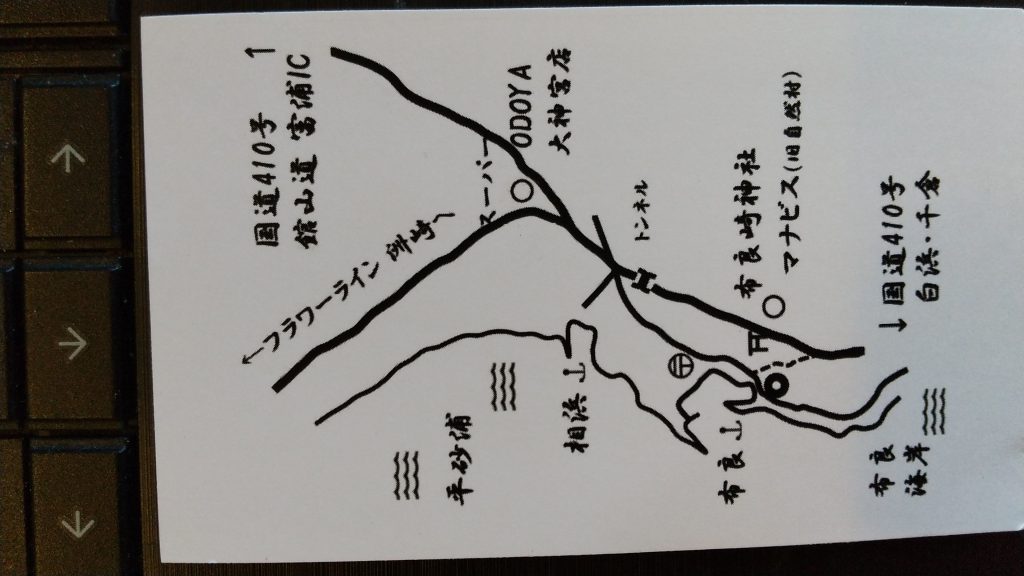 国道410号
館山道 富浦IC
フラワーライン
スーパー
ODOYA
大神宮店
平砂浦
相浜
トンネル
布良崎神社
マナビス(旧自然村)
布良
国道410号
白浜・千倉
布良
海岸